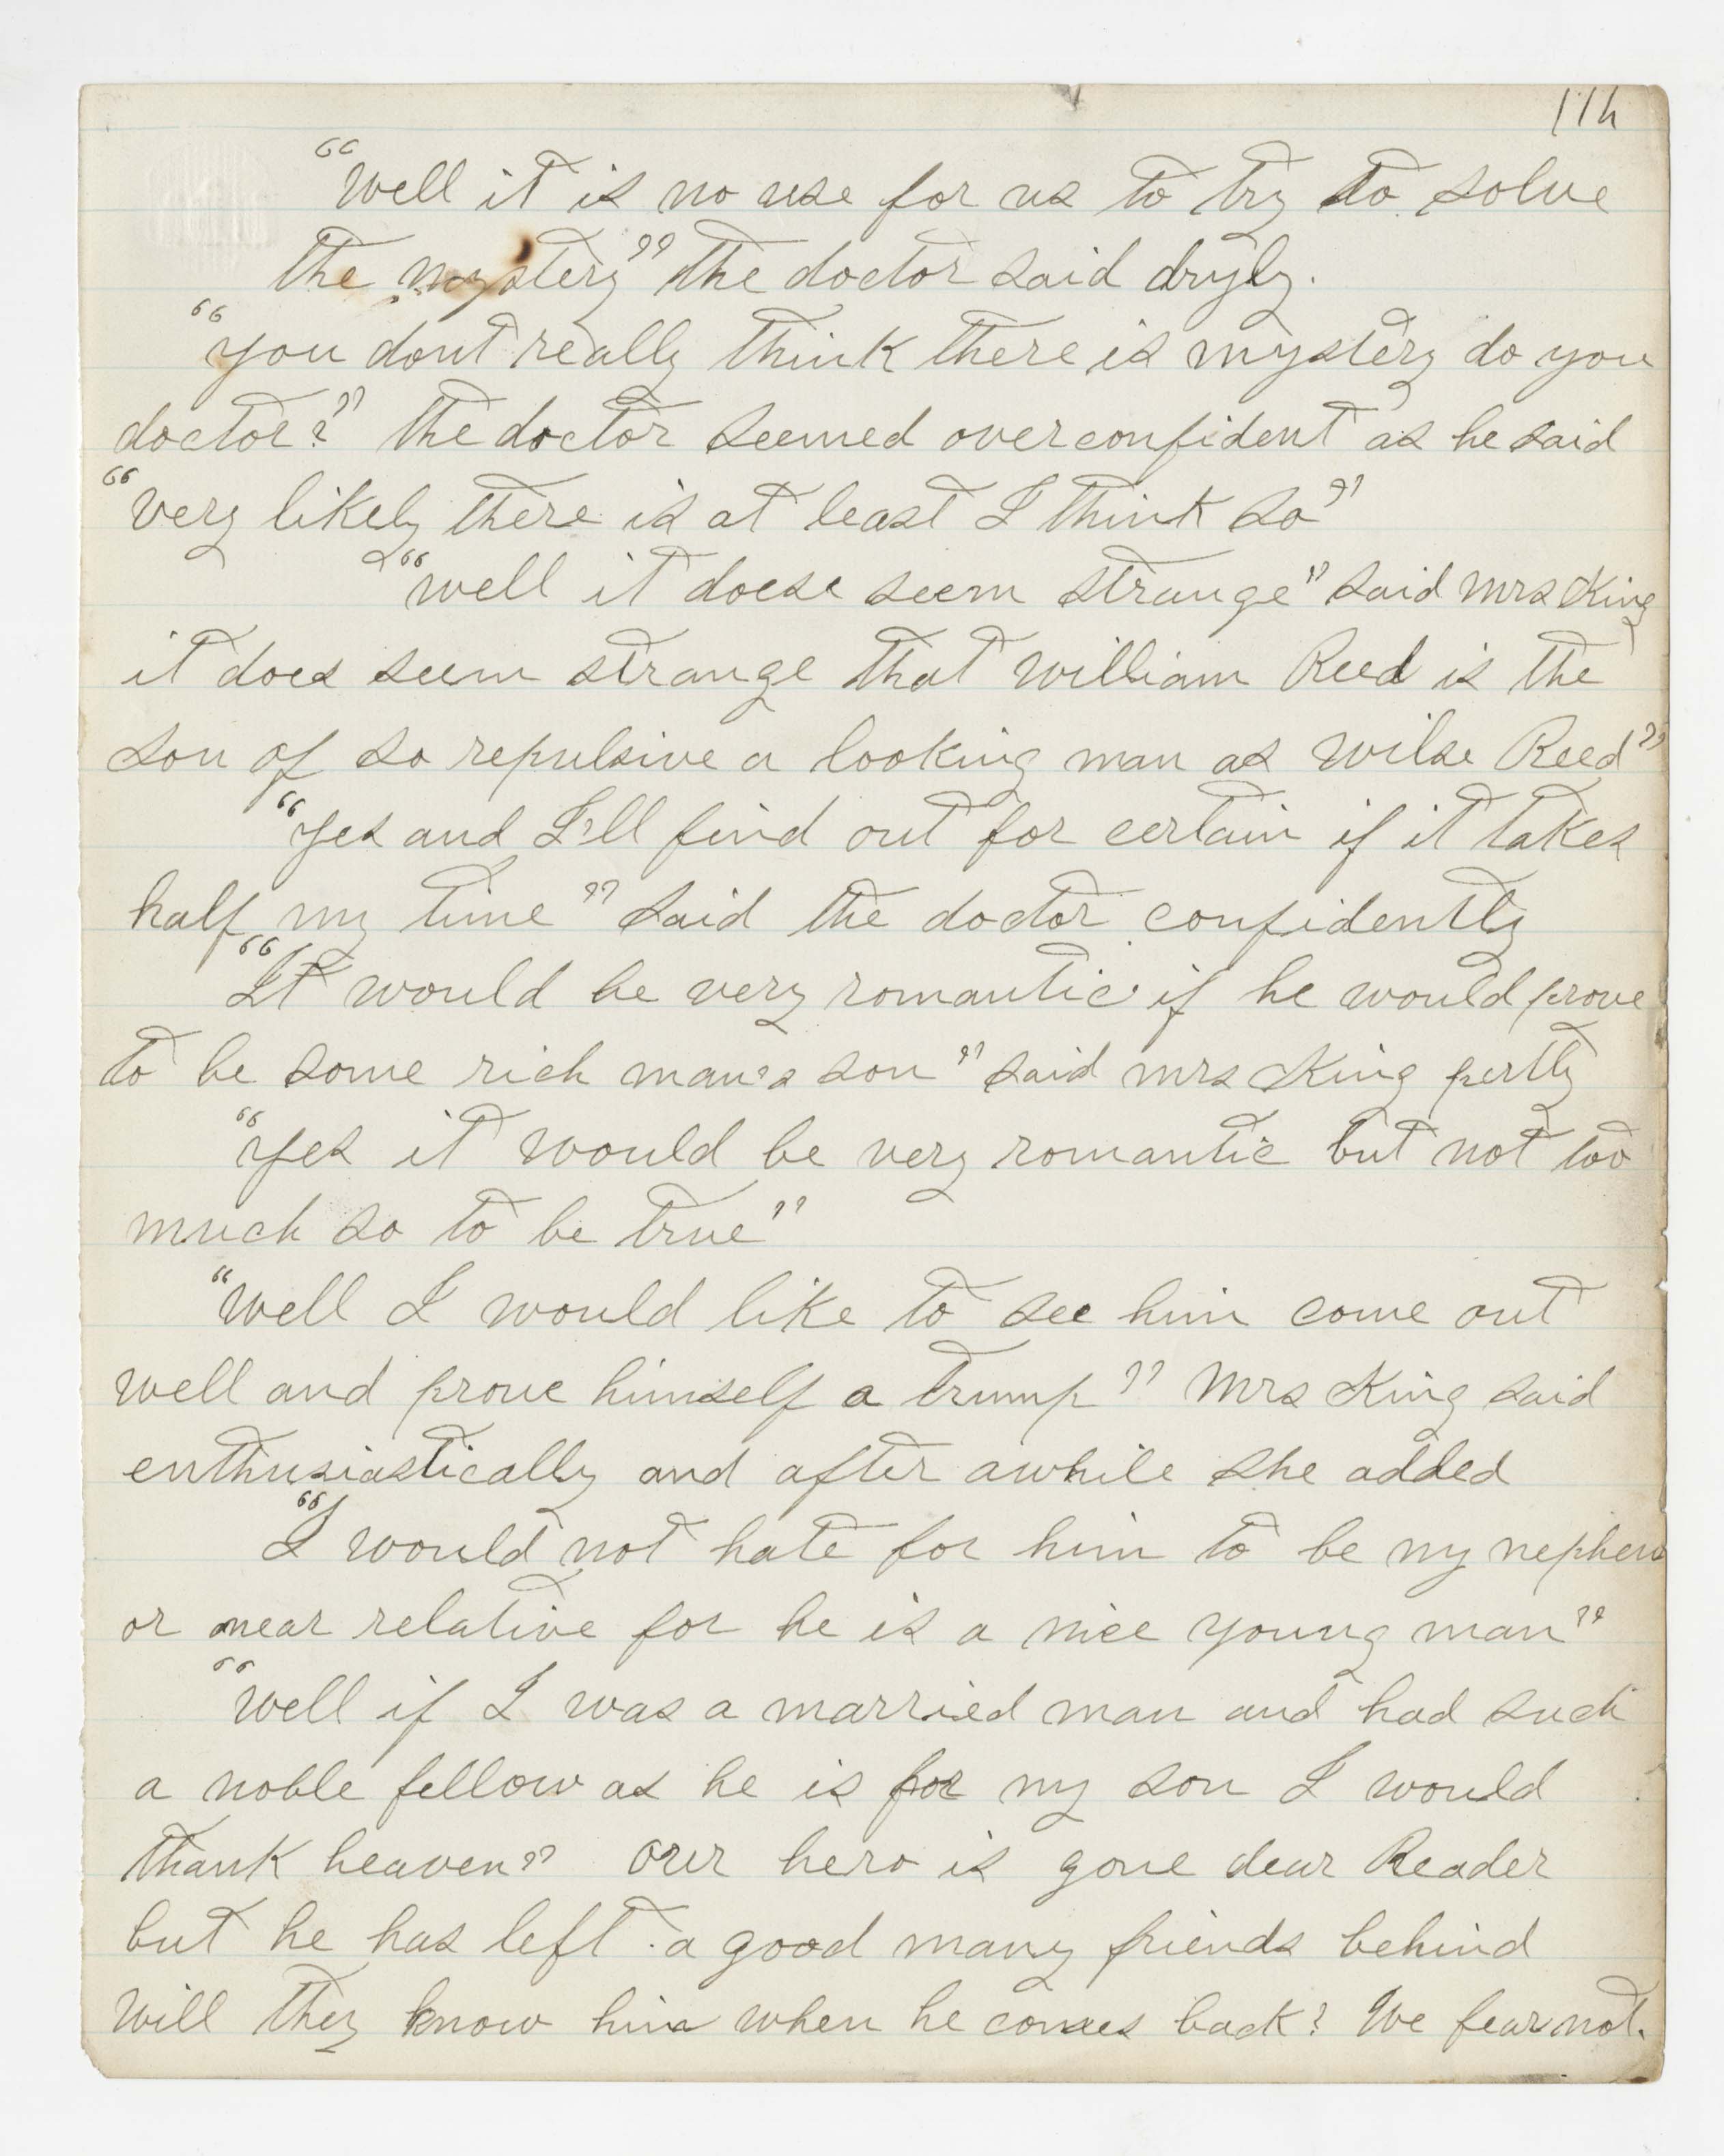 114
"Well it is no use for us to try to solve
the mystery" the doctor said dryly.
"You dont really think there is mystery do you
doctor?" the doctor seemed overconfident as he said
"very likely there is at least I think so"
"well it doese seem strange" said Mrs King
it does seem strange that William Reed is the
son of so repulsive a looking man as Wilse Reed"
"Yes and I'll find out for certain if it takes
half my time" said the doctor confidently
"It would be very romantic if he would prove
to be some rich man's son" said mrs King pertly
"Yes it would be very romantic but not too
much so to be true"
"Well I would like to see him come out
well and prove himself a trump" Mrs King said
enthusiastically and after awhile she added
"I would not hate for him to be my nephew
or near relative for he is a nice young man"
"Well if I was a married man and had such
a noble fellow as he is for my son I would
thank heaven" Our hero is gone dear Reader
but he has left a good many friends behind
Will they know him when he comes back? We fear not.